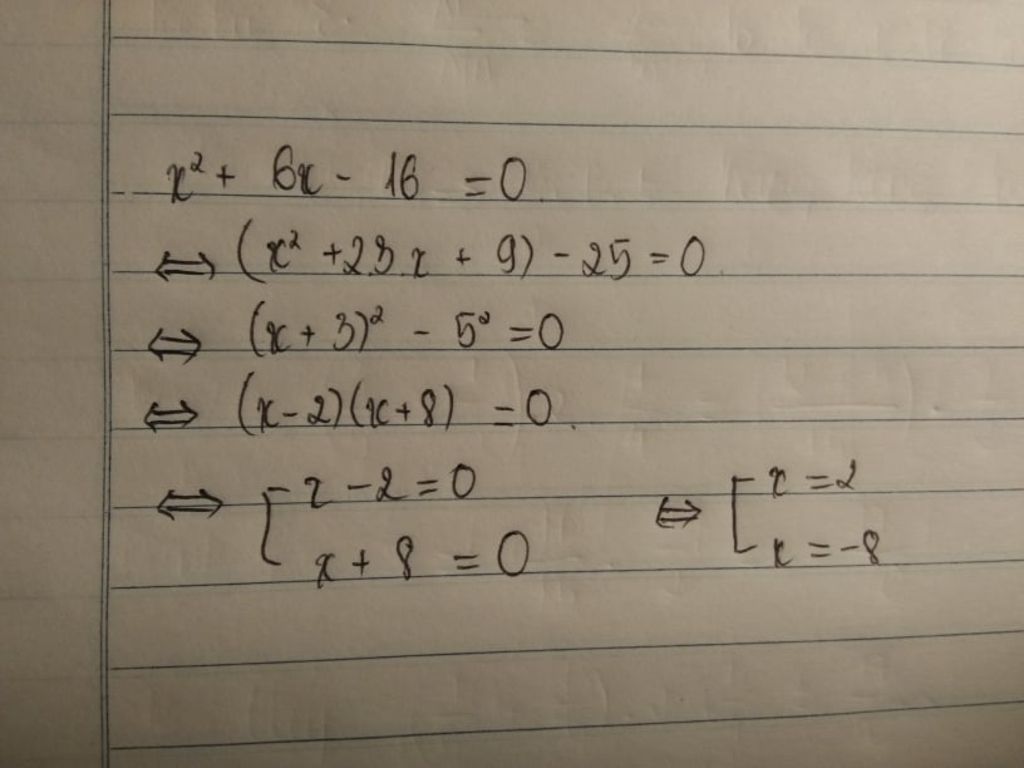 x² + 6x - 16 = 0
⇔ (x² + 23x + 9) - 25 = 0
⇔ (x + 3)² - 5² = 0
⇔ (x - 2)(x + 8) = 0
⇔ [ x - 2 = 0 ⇔ [ x = 2
x + 8 = 0 x = -8